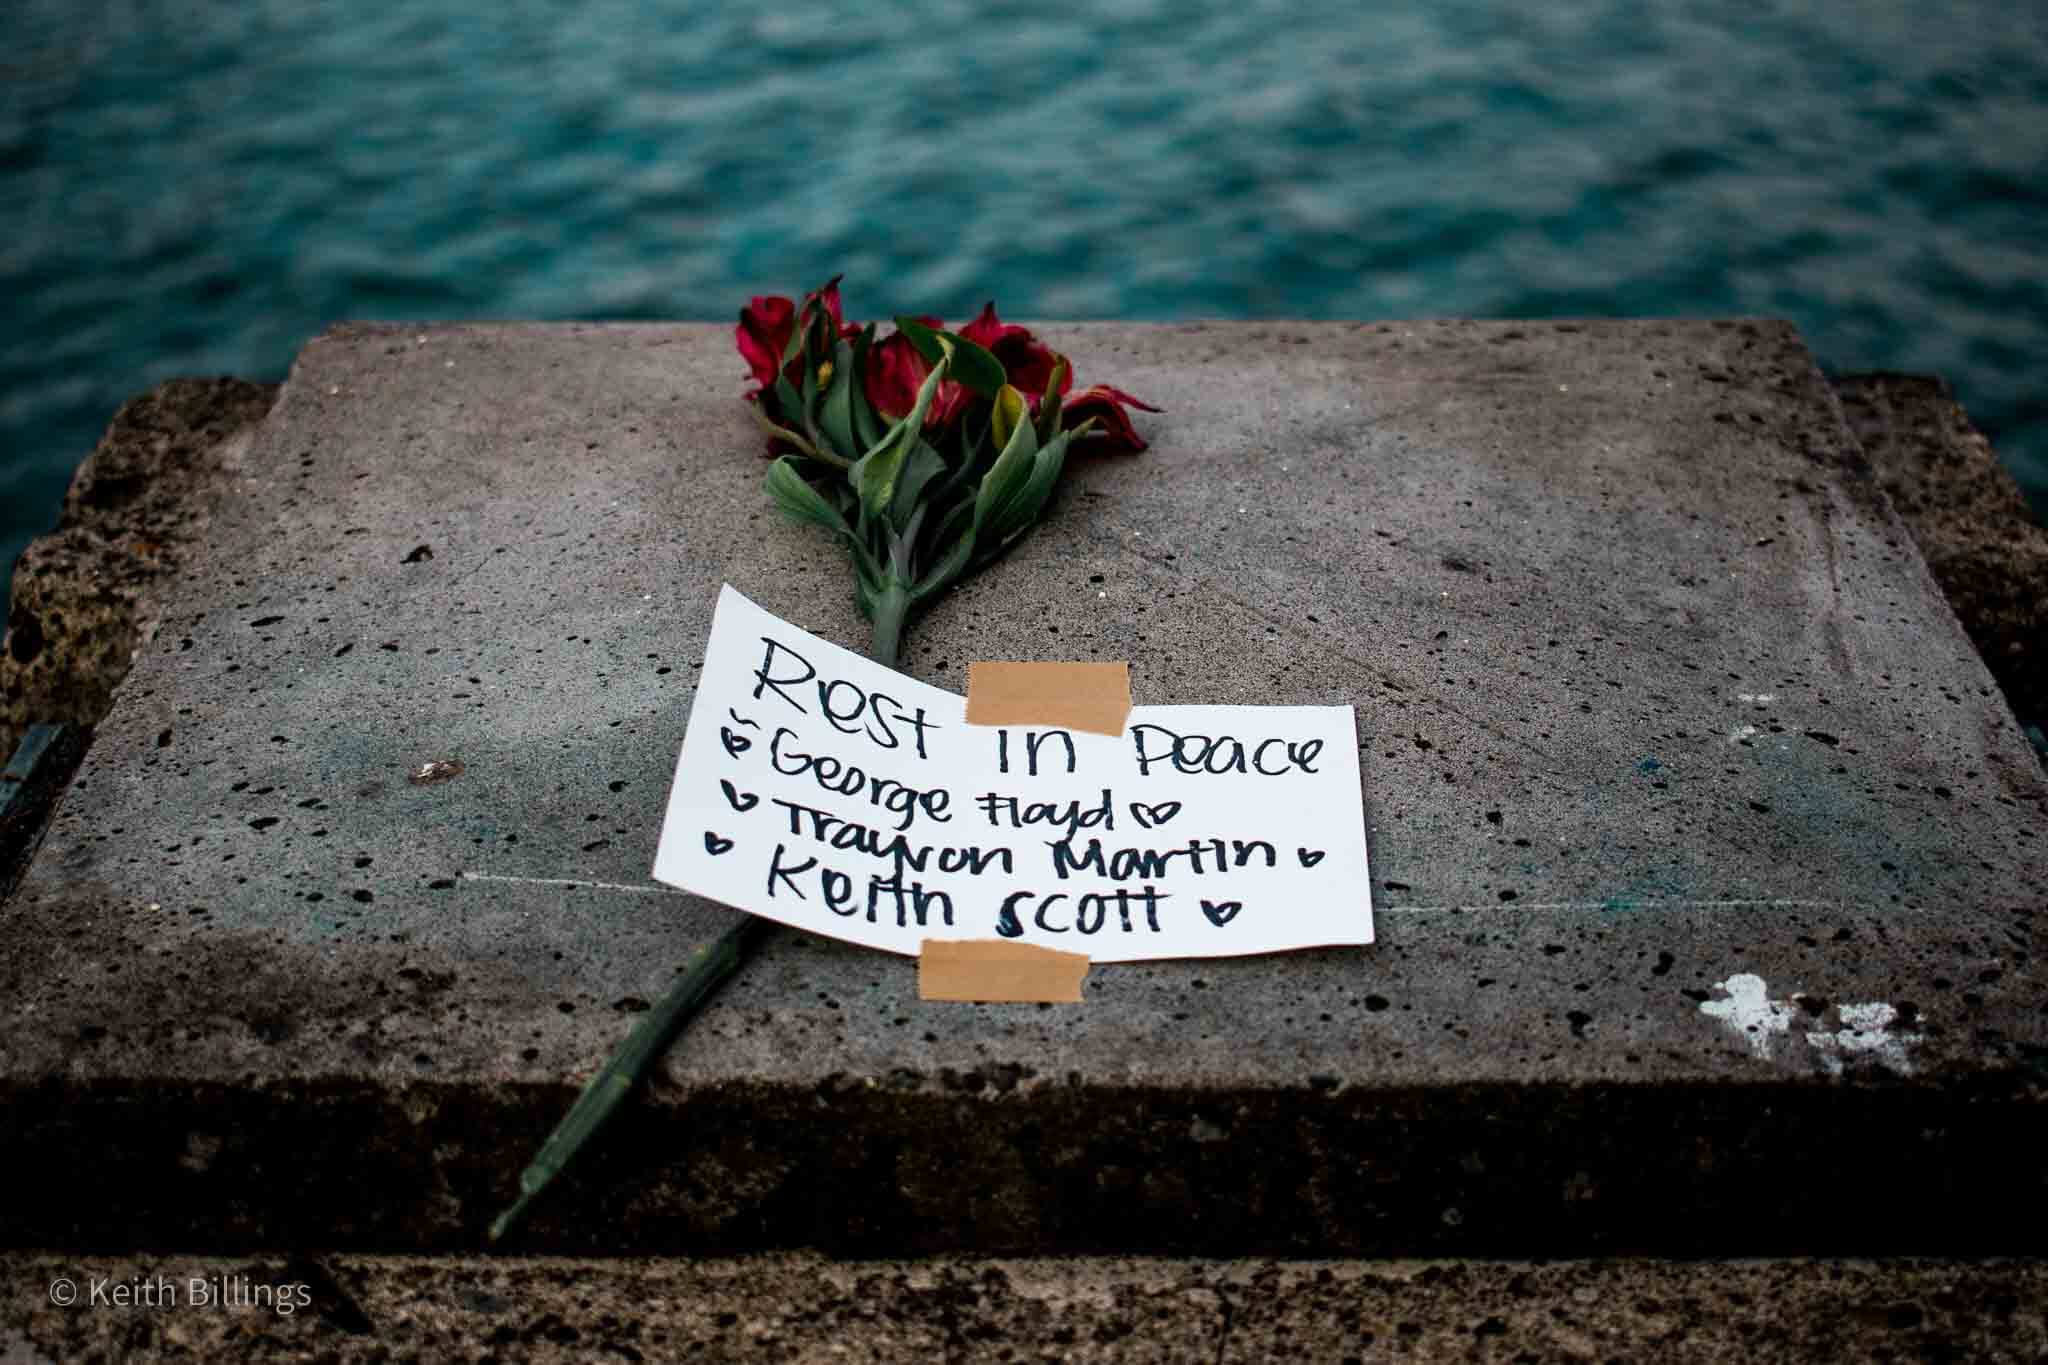 Rest in Peace
George Floyd
Trayvon Martin
Keith Scott
© Keith Billings